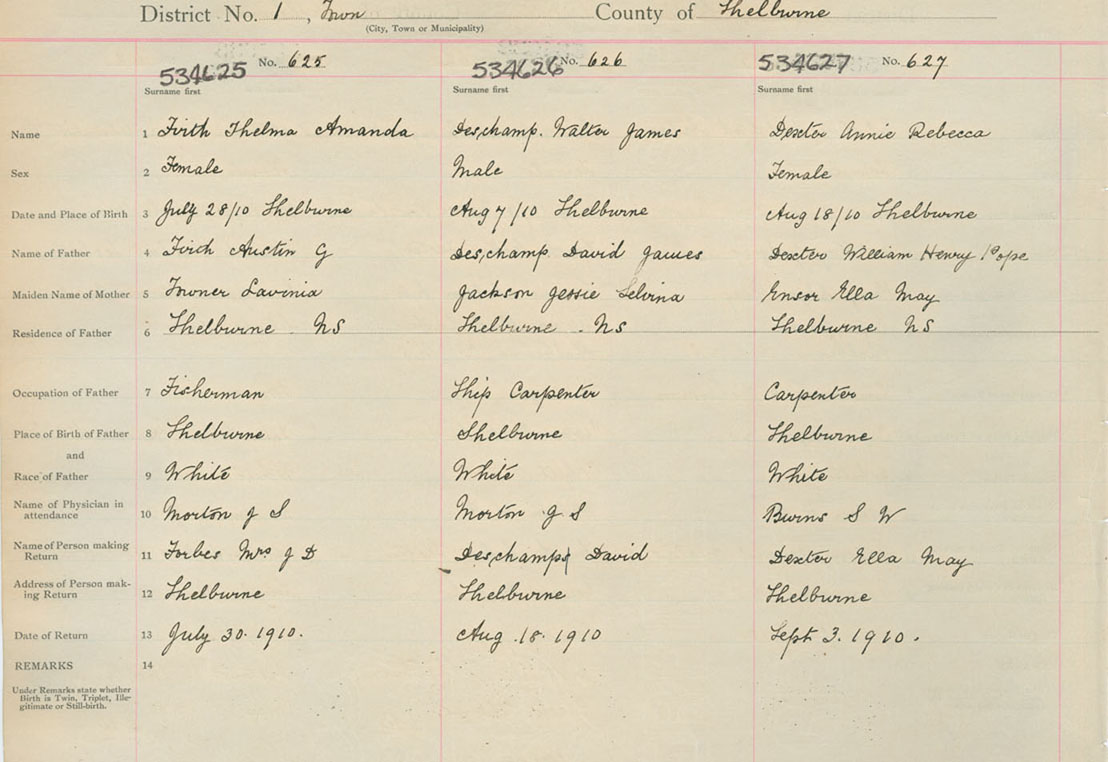 District No. 1, Town County of Shelburne
(City, Town or Municipality)
534625 No. 625 534626 No. 626 534627 No. 627
Surname first Surname first Surname first
Name 1 Firth Thelma Amanda Deschamp. Walter James Dexter Annie Rebecca
Sex 2 Female Male Female
Date and Place of Birth 3 July 28/10 Shelburne Aug 7/10 Shelburne Aug 18/10 Shelburne
Name of Father 4 Firth Austin G Deschamp David James Dexter William Henry Pope
Maiden Name of Mother 5 Towner Lavinia Jackson Jessie Selvina Ensor Ella May
Residence of Father 6 Shelburne NS Shelburne . NS Shelburne NS
Occupation of Father 7 Fisherman Ship Carpenter Carpenter
Place of Birth of Father 8 Shelburne Shelburne Shelburne
and
Race of Father 9 White White White
Name of Physician in
attendance 10 Morton J S Morton J S Burns S W
Name of Person making
Return 11 Forbes Mrs J D Deschamps David Dexter Ella May
Address of Person mak-
ing Return 12 Shelburne Shelburne Shelburne
Date of Return 13 July 30. 1910. Aug .18. 1910 Sept 3. 1910.
REMARKS 14
Under Remarks state whether
Birth is Twin, Triplet, Ille-
gitimate or Still-birth.